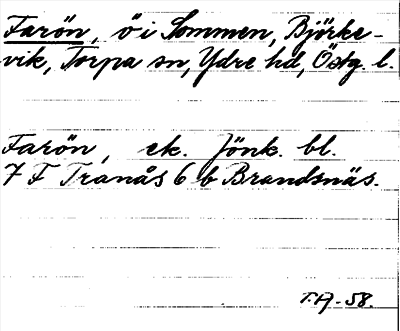 Farön, ö i Sommen, Björke-
vik, Torpa sn, Ydre hd, Östg. l.
Farön, ek. Jönk. bl.
7 F Tranås 6 b Brandsnäs.
T.A. -58.